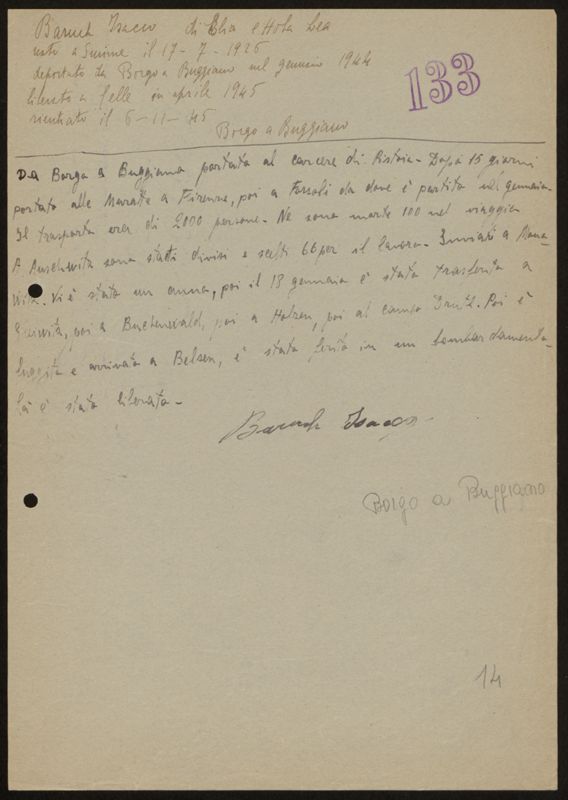 Baruch Isacco di Elia e Hota Lea
nato a Smirne il 17-7-1926
deportato da Borgo a Buggiano nel gennaio 1944
133
liberato a Celle in aprile 1945
rientrato il 6-11-45
Borgo a Buggiano
Da Borgo a Buggiano portato al carcere di Pistoia - Dopo 15 giorni
portato alle Murate a Firenze, poi a Fossoli da dove è partito nel gennaio.
Il trasporto era di 2000 persone - Ne sono morte 100 nel viaggio
A Auschwitz sono stati divisi e scelti 66 per il lavoro - Inviato a Mono-
witz. Vi è stato un anno, poi il 18 gennaio è stato trasferito a
poi a Buchenwald, poi a Holzen, poi al campo Poi è
fuggito e arrivato a Belsen, è stato ferito in un bombardamento -
là è stato liberato -
Baruch Isacco
Borgo a Buggiano
14